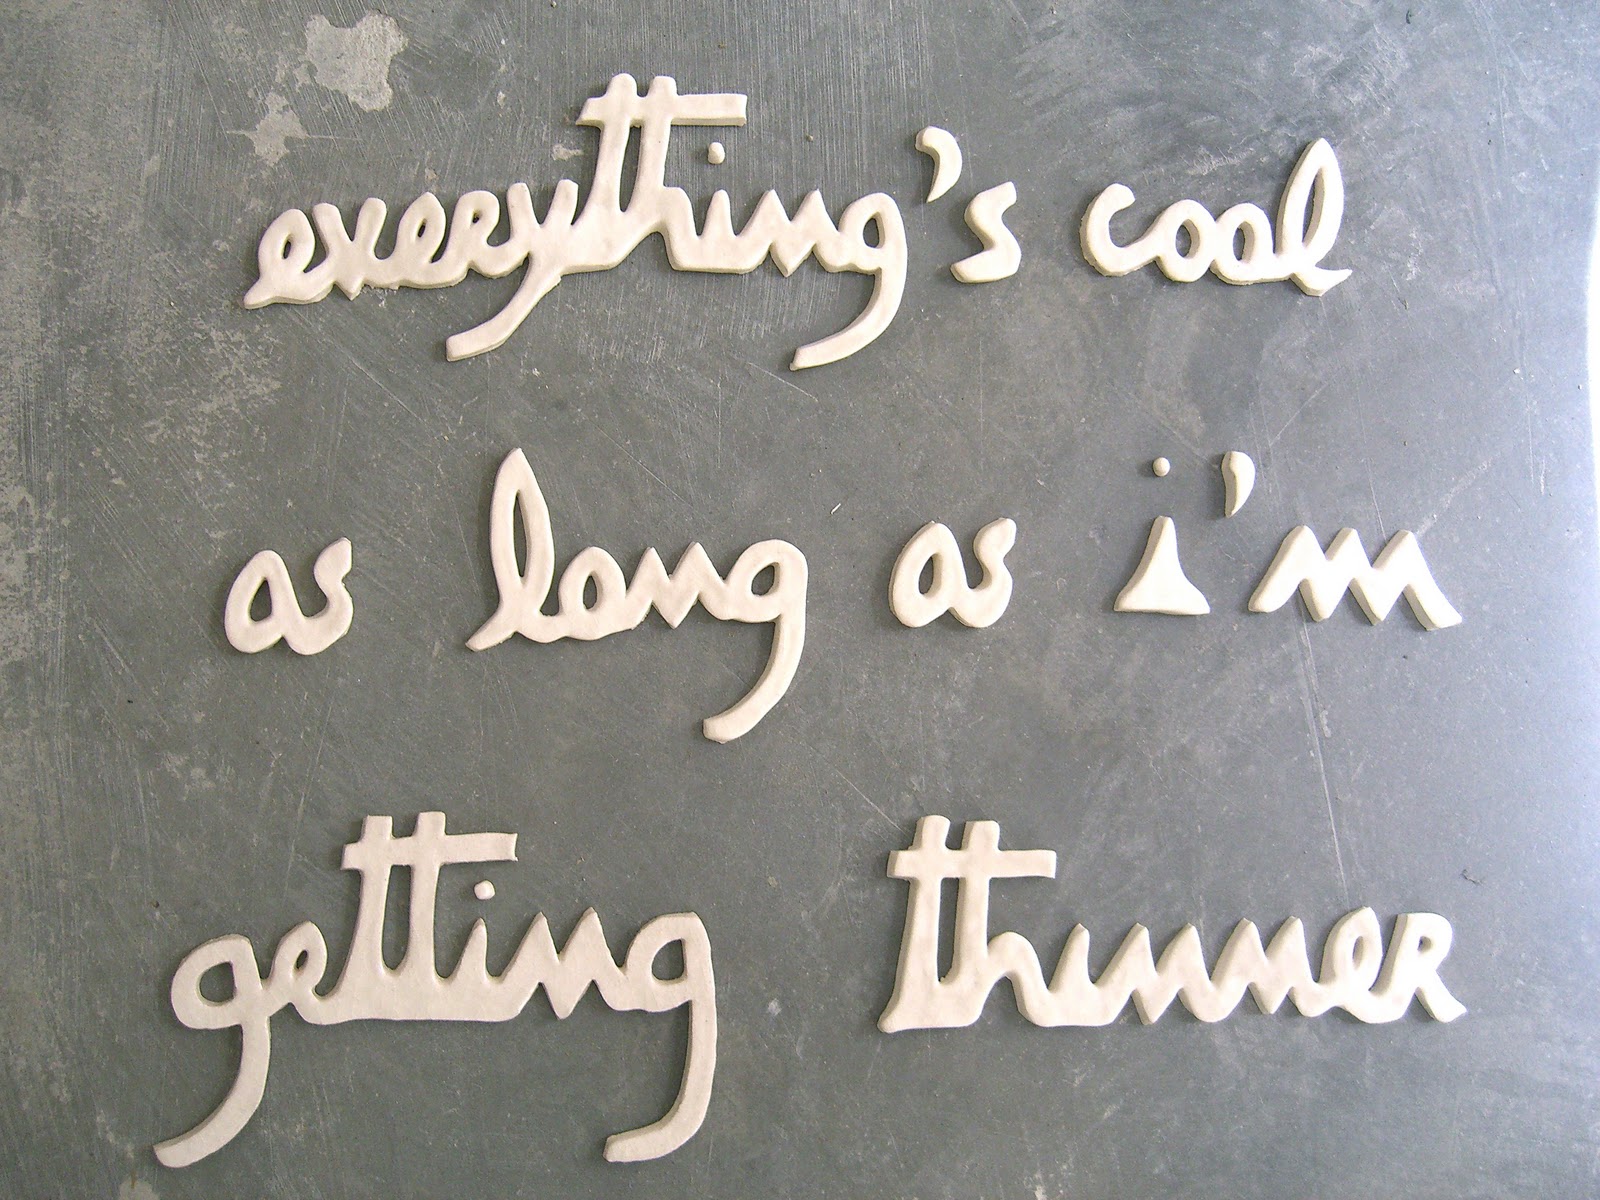 everything's cool
as long as i'm
getting thinner